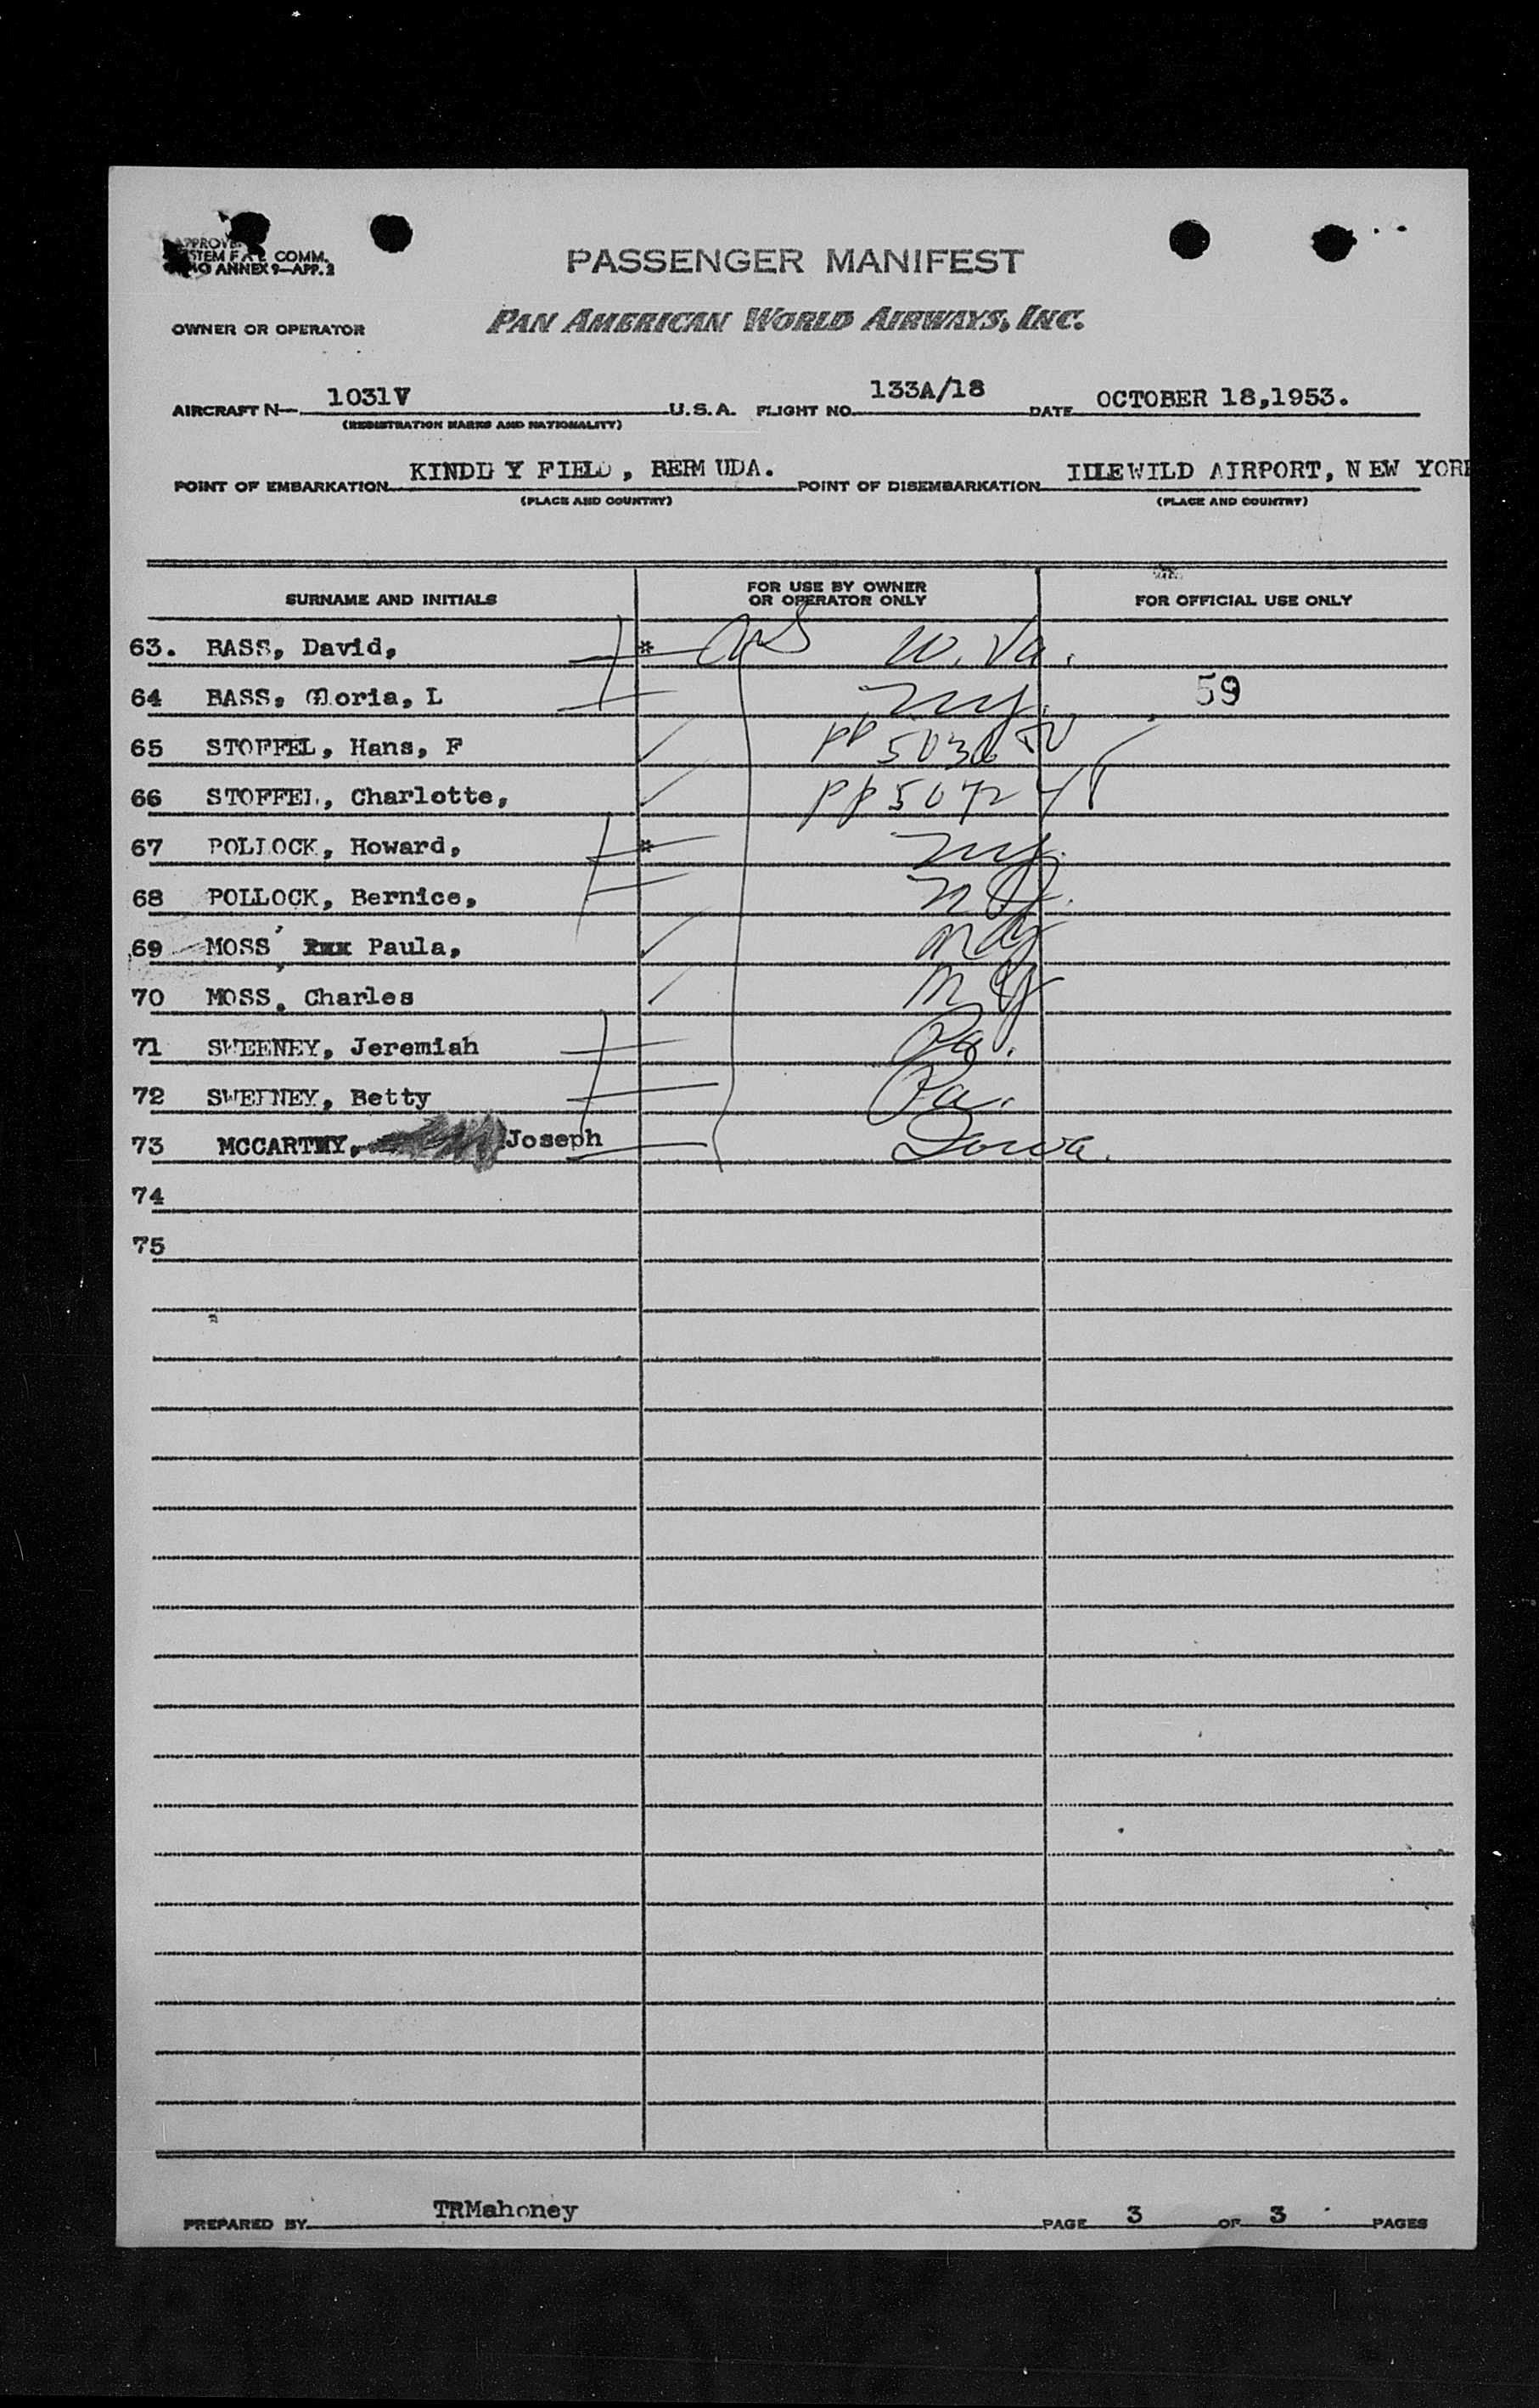 PASSENGER MANIFEST
COMM.
ANNEX 9—APP. 2
OWNER OR OPERATOR PAN AMERICAN WORLD AIRWAYS, INC.
AIRCRAFT N— 1031V U.S.A. FLIGHT NO. 133A/18 DATE OCTOBER 18,1953.
(REGISTRATION MARKS AND NATIONALITY)
POINT OF EMBARKATION KINDLEY FIELD, BERMUDA. POINT OF DISEMBARKATION IDLEWILD AIRPORT, NEW YORK
(PLACE AND COUNTRY) (PLACE AND COUNTRY)
SURNAME AND INITIALS FOR USE BY OWNER OR OPERATOR ONLY FOR OFFICIAL USE ONLY
63. BASS, David, * US W. Va.
64 BASS, Gloria, L NY. 59
65 STOFFEL, Hans, F pp 5036
66 STOFFEL, Charlotte, pp 5072
67 POLLOCK, Howard, * NY.
68 POLLOCK, Bernice, NY.
69 MOSS, Paula, NY
70 MOSS, Charles NY
71 SWEENEY, Jeremiah Pa.
72 SWEENEY, Betty Pa.
73 MCCARTHY, Joseph Iowa.
74
75
PREPARED BY TRMahoney PAGE 3 OF 3 PAGES